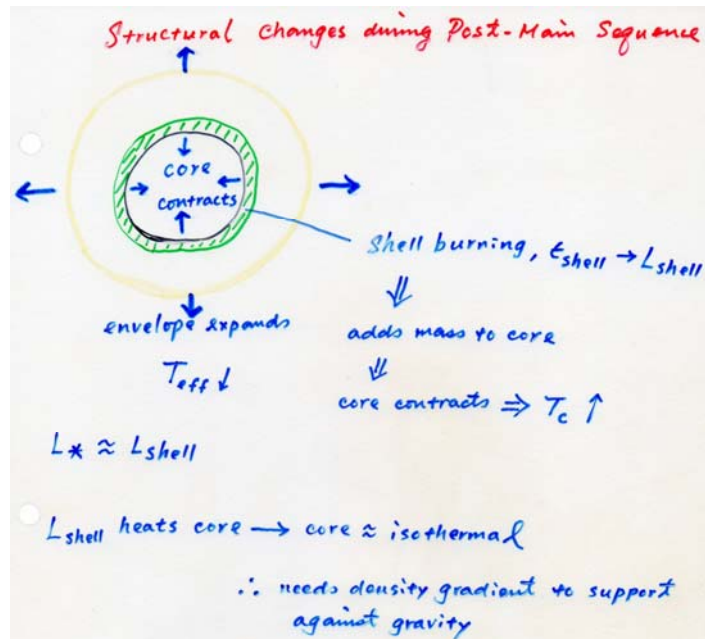 Structural Changes during Post-Main Sequence
core
contracts
shell burning, t_shell → L_shell
envelope expands
T_eff ↓
⇓
adds mass to core
⇓
core contracts ⇒ T_c ↑
L_* ≈ L_shell
L_shell heats core → core ≈ isothermal
∴ needs density gradient to support
against gravity